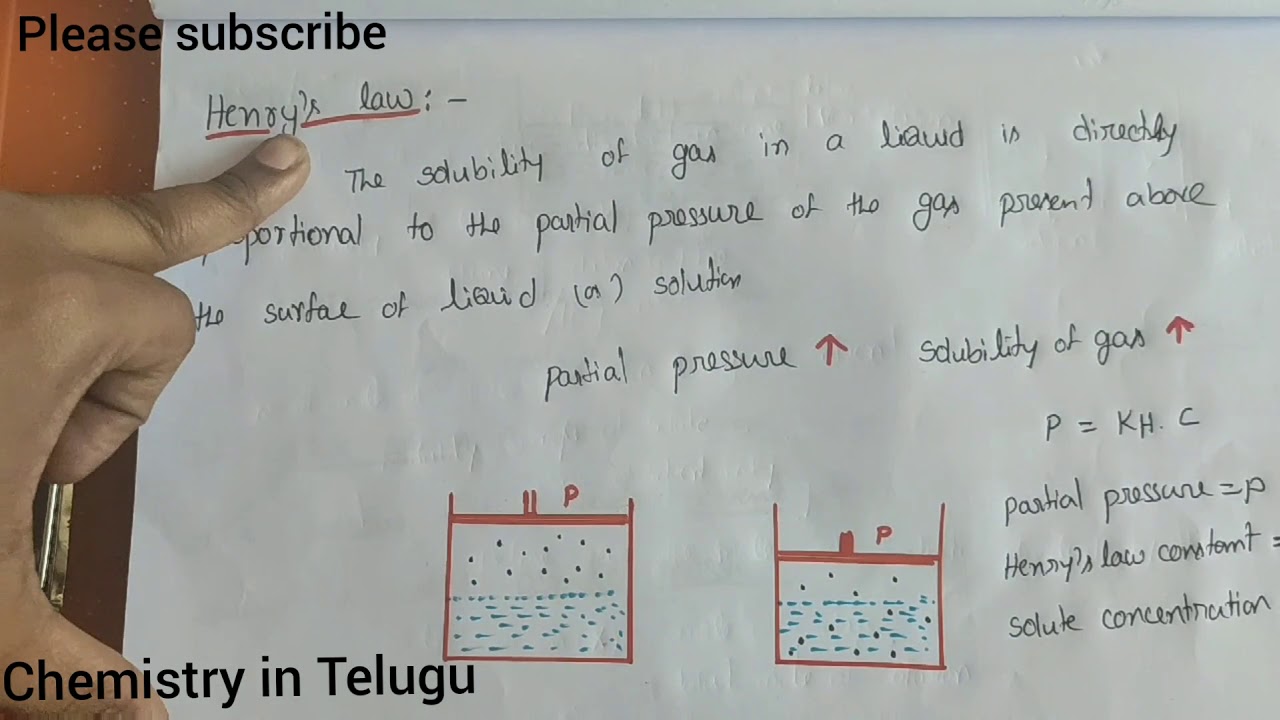 Please subscribe
Henry's law: -
The solubility of gas in a liquid is directly
proportional to the partial pressure of the gas present above
the surfae of liquid (or) solution
partial pressure ↑ solubility of gas ↑
P = KH. C
P
P
partial pressure = p
Henry's law constant =
solute concentration
Chemistry in Telugu